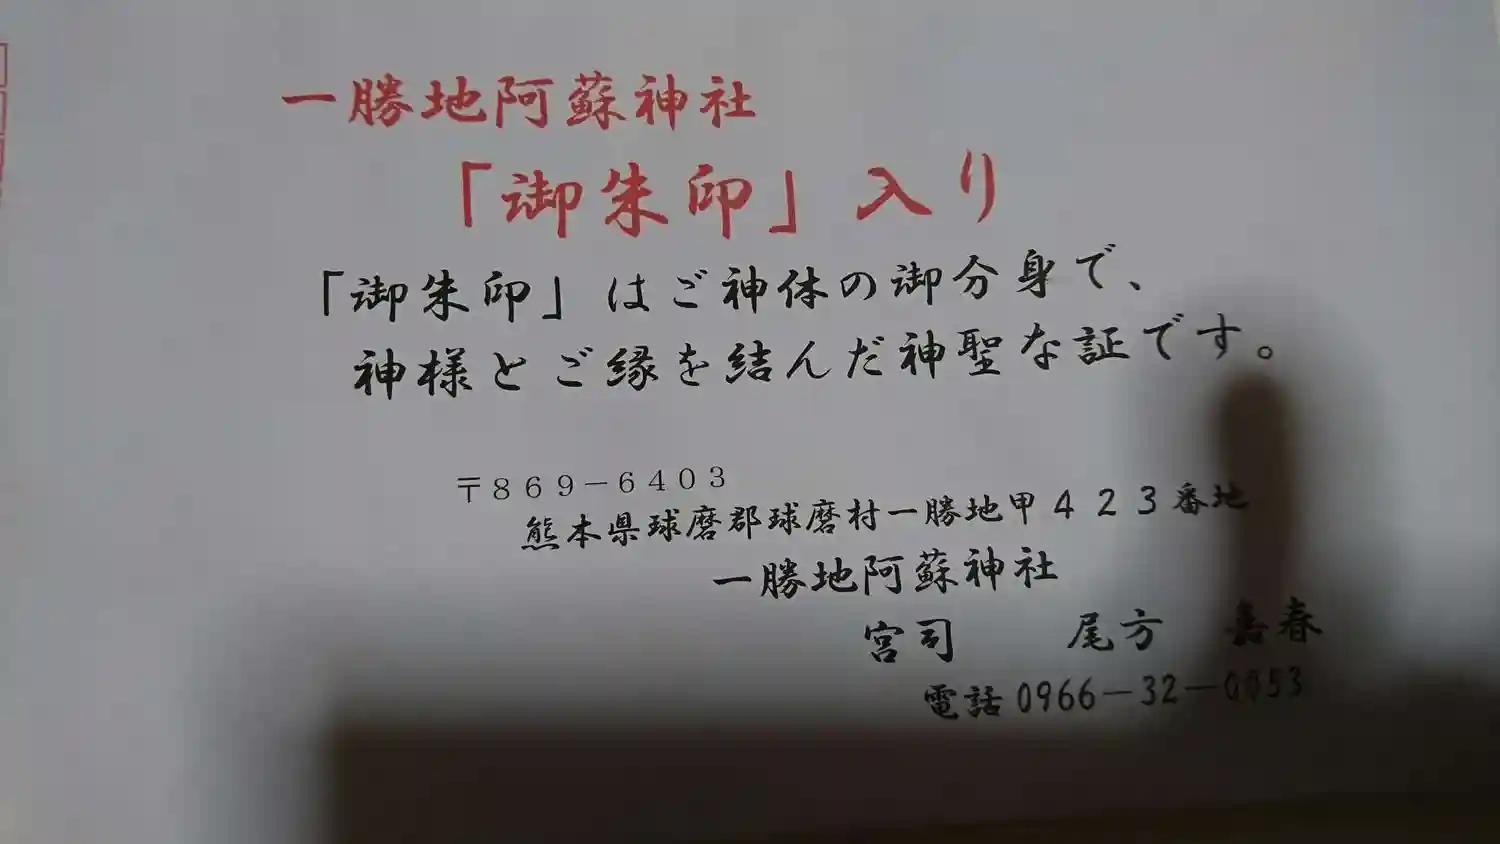 一勝地阿蘇神社
「御朱印」入り
「御朱印」はご神体の御分身で、
神様とご縁を結んだ神聖な証です。
〒869－6403
熊本県球磨郡球磨村一勝地甲４２３番地
一勝地阿蘇神社
宮司　尾方　嘉春
電話0966－32－0053